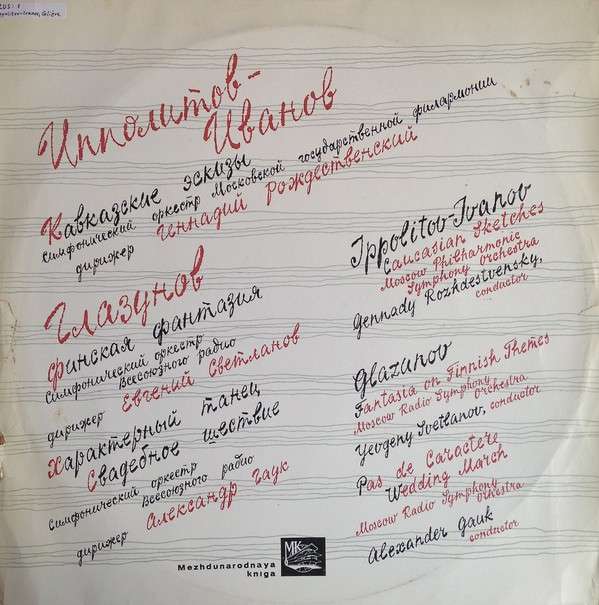 Ипполитов-
Иванов
Кавказские эскизы
Симфонический оркестр Московской государственной филармонии
дирижер Геннадий Рождественский
Глазунов
Финская фантазия
Симфонический оркестр
Всесоюзного радио
дирижер Евгений Светланов
Характерный танец
Свадебное шествие
Симфонический оркестр
Всесоюзного радио
дирижер Александр Гаук
Ippolitov-Ivanov
Caucasian Sketches
Moscow Philharmonic
Symphony Orchestra
Gennady Rozhdestvensky,
conductor
Glazunov
Fantasia on Finnish Themes
Moscow Radio Symphony
Orchestra
Yevgeny Svetlanov, conductor
Pas de Caractere
Wedding March
Moscow Radio Symphony
Orhestra
Alexander Gauk
conductor
MK
Mezhdunarodnaya
kniga